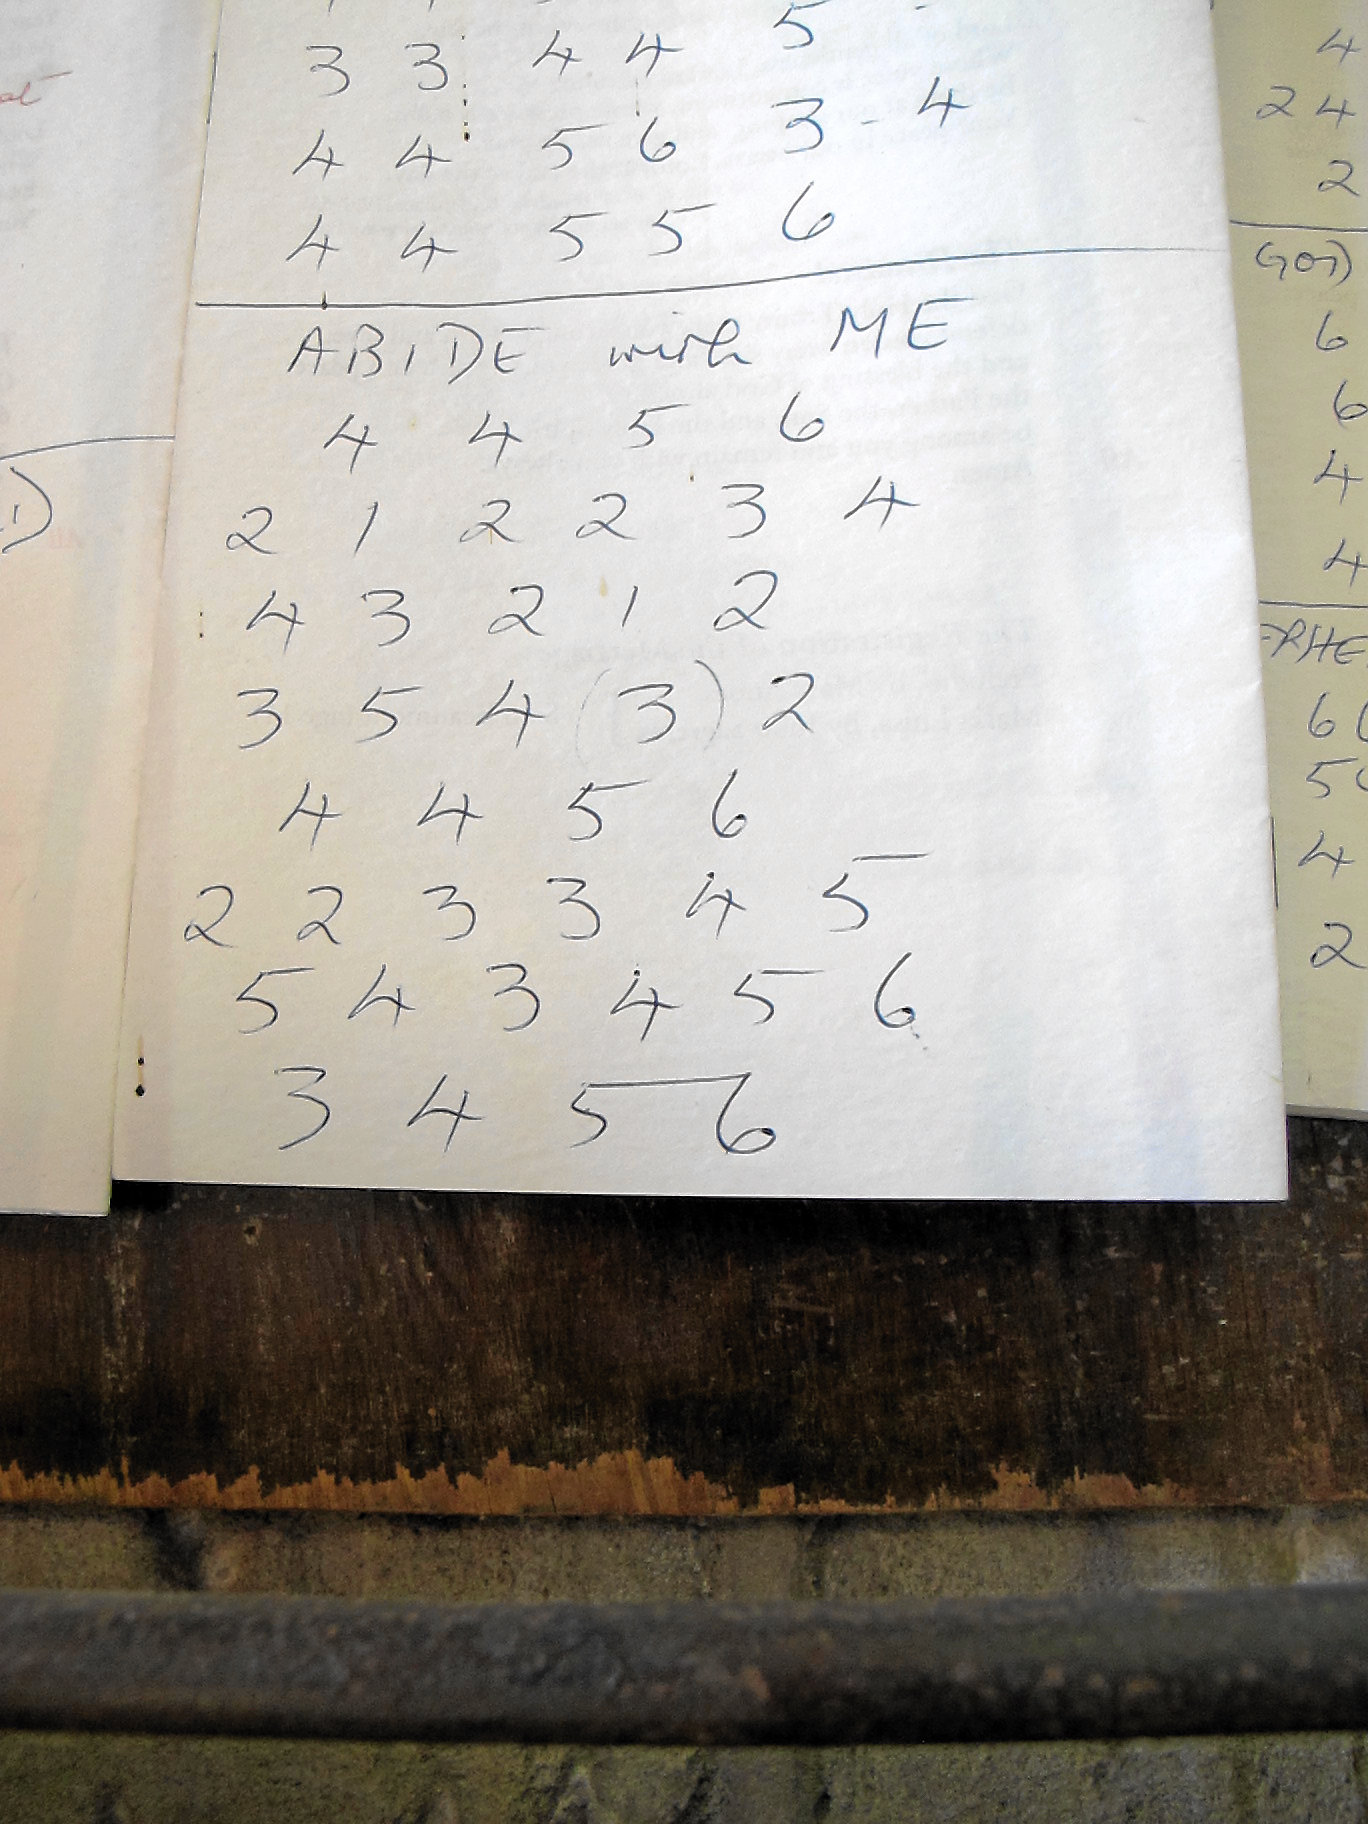 3 3 4 4 5
4 4 5 6 3 - 4
4 4 5 5 6
ABIDE with ME
4 4 5 6
2 1 2 2 3 4
4 3 2 1 2
3 5 4 (3) 2
4 4 5 6
2 2 3 3 4 5
5 4 3 4 5 6
3 4 5 6
4
2 4
2
GOD
6
6
4
4
6
5
4
2